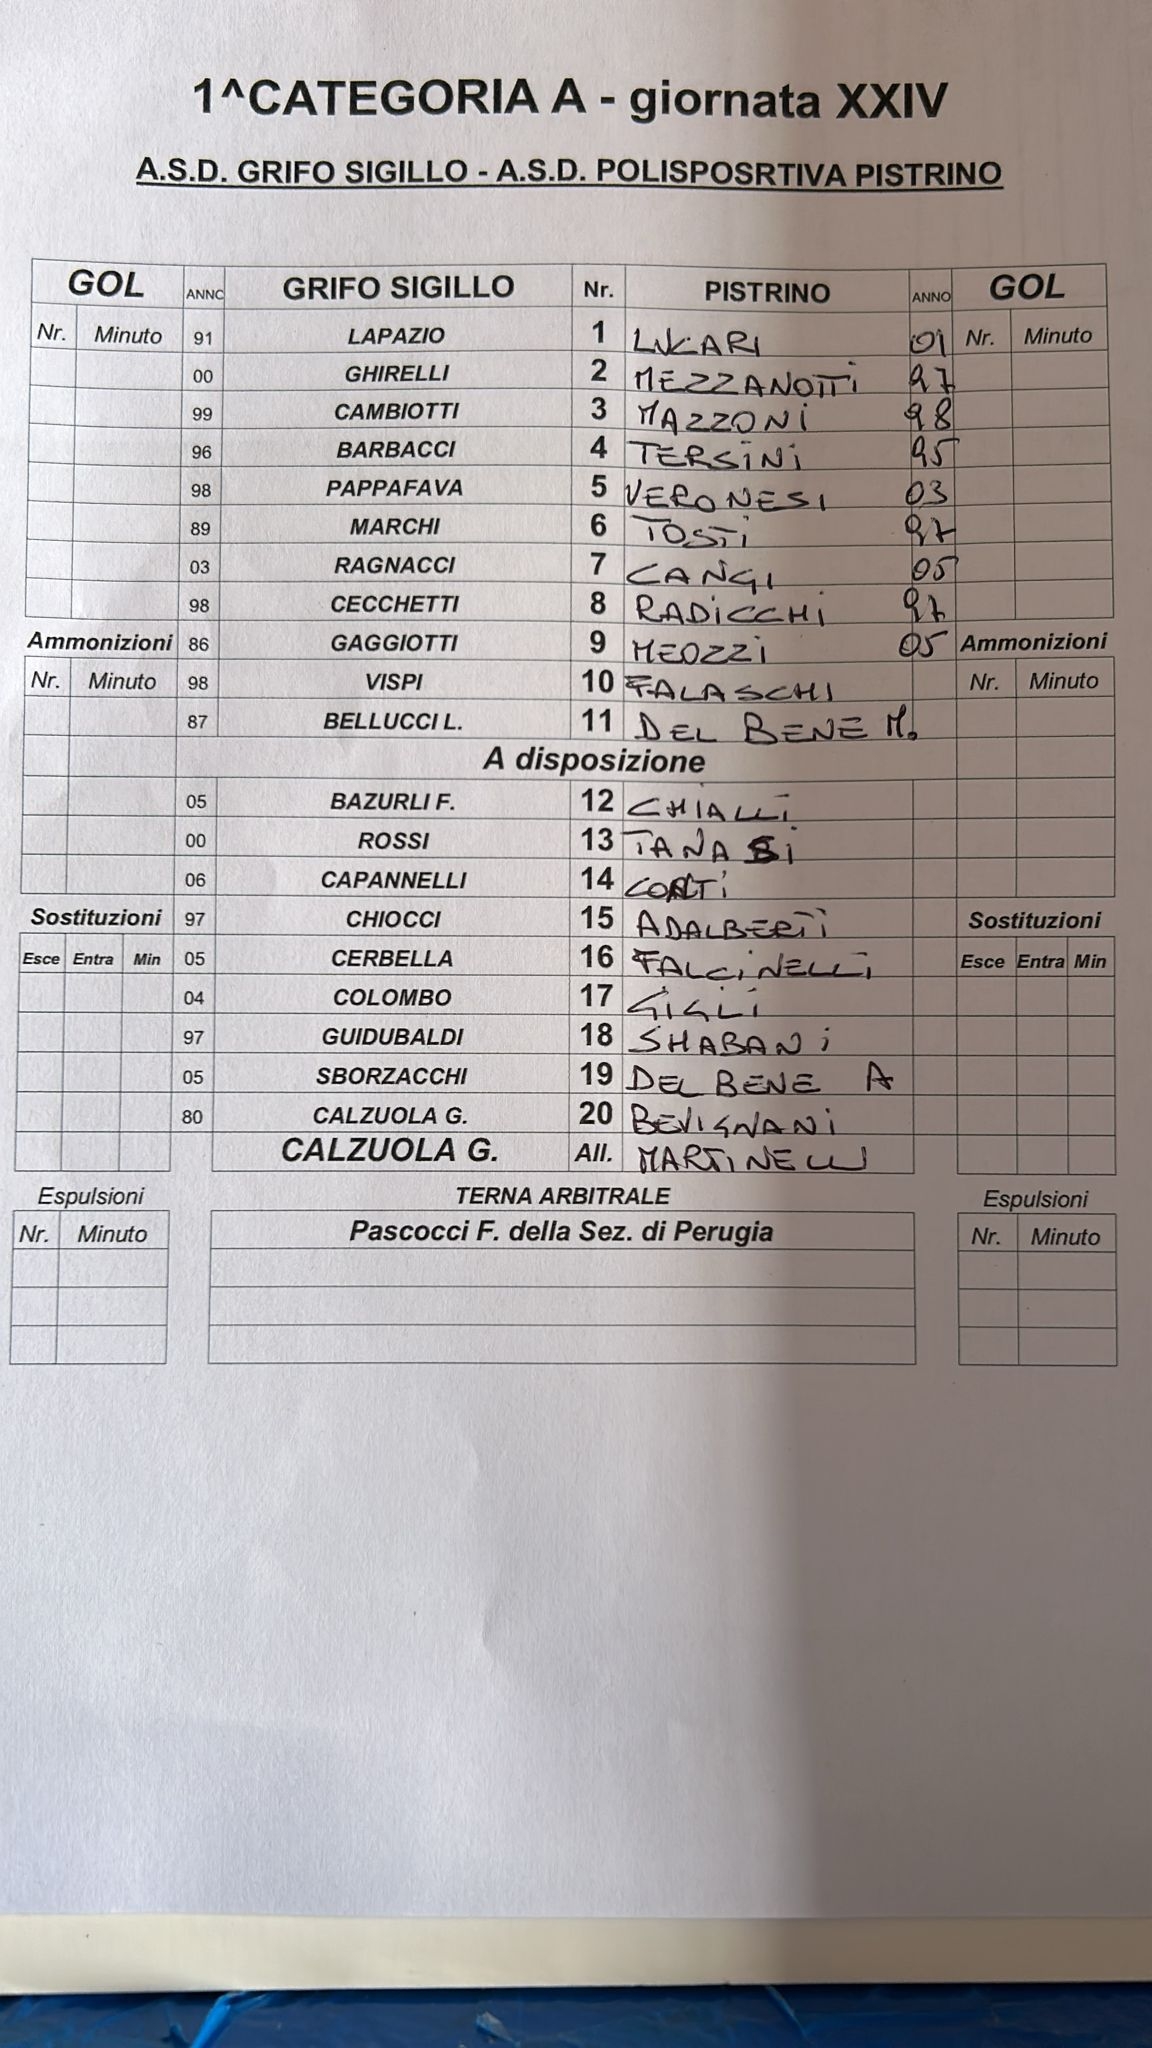 1^CATEGORIA A - giornata XXIV
A.S.D. GRIFO SIGILLO - A.S.D. POLISPOSRTIVA PISTRINO
GOL ANNO GRIFO SIGILLO Nr. PISTRINO ANNO GOL
Nr. Minuto 91 LAPAZIO 1 LUCARI 01 Nr. Minuto
00 GHIRELLI 2 MEZZANOTTI 97
99 CAMBIOTTI 3 MAZZONI 98
96 BARBACCI 4 TERSINI 95
98 PAPPAFAVA 5 VERONESI 03
89 MARCHI 6 TOSTI 97
03 RAGNACCI 7 CANGI 05
98 CECCHETTI 8 RADICCHI 97
Ammonizioni 86 GAGGIOTTI 9 MEOZZI 05 Ammonizioni
Nr. Minuto 98 VISPI 10 FALASCHI Nr. Minuto
87 BELLUCCI L. 11 DEL BENE M.
A disposizione
05 BAZURLI F. 12 CHIALLI
00 ROSSI 13 TANASI
06 CAPANNELLI 14
Sostituzioni 97 CHIOCCI 15 ADALBERTI Sostituzioni
Esce Entra Min 05 CERBELLA 16 FALCINELLI Esce Entra Min
04 COLOMBO 17 GIGLI
97 GUIDUBALDI 18 SHABANI
05 SBORZACCHI 19 DEL BENE A
80 CALZUOLA G. 20 BEVIGNANI
CALZUOLA G. All. MARTINELLI
Espulsioni TERNA ARBITRALE Espulsioni
Nr. Minuto Pascocci F. della Sez. di Perugia Nr. Minuto